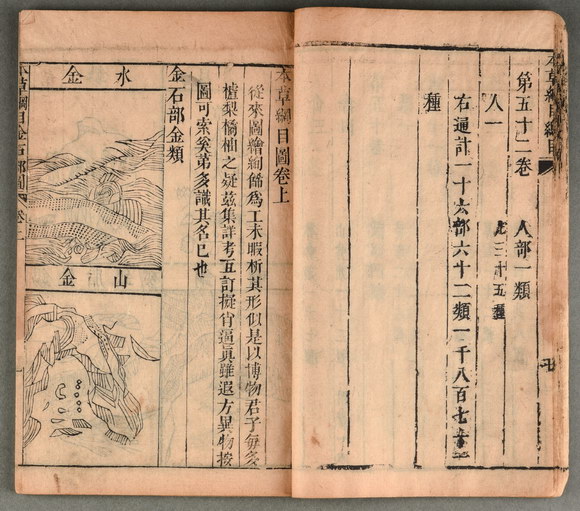 本草綱目總目
第五十二卷　人部一類
人一　凡三十五種
右通計一十六部六十二類一千八百七十二
種
本草綱目圖卷上
從來圖繪絢飾爲工未暇析其形似是以博物君子每多
樝梨橘柚之疑茲集詳考互訂擬肖逼眞雖遐方異物按
圖可索奚第多識其名已也
金石部金類
水金
山金
本草綱目金石部圖　卷上